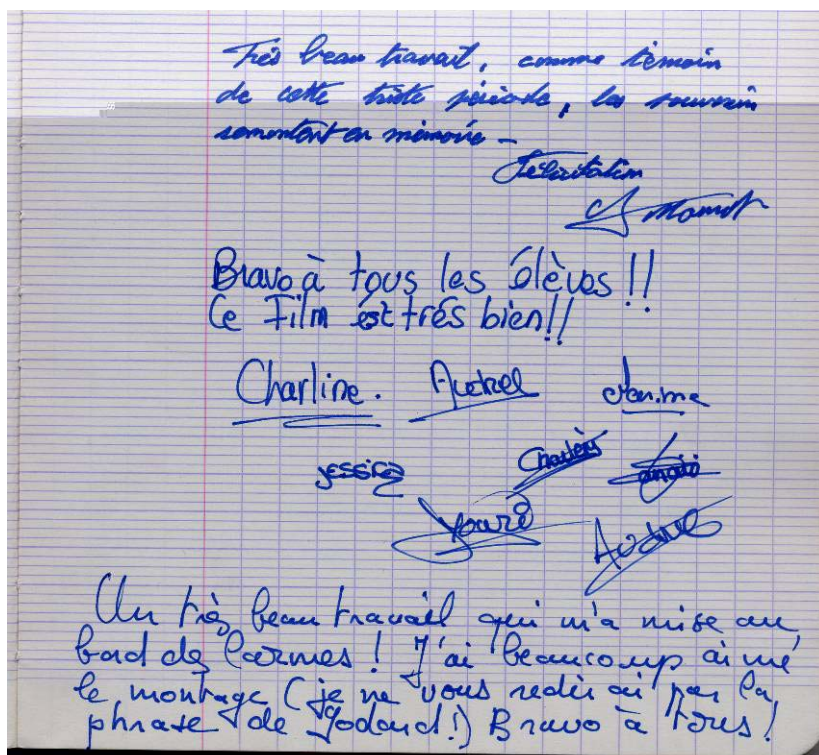 Très beau travail, comme témoin
de cette triste période, les souvenirs
remontent en mémoire -
Félicitation
Bravo à tous les élèves !!
Ce Film est très bien !!
Charline. Audrel
jessica Charlène
Un très beau travail qui m'a mise au
bord des larmes ! J'ai beaucoup aimé
le montage (je ne vous redirai pas la
phrase de Godard !) Bravo à tous !